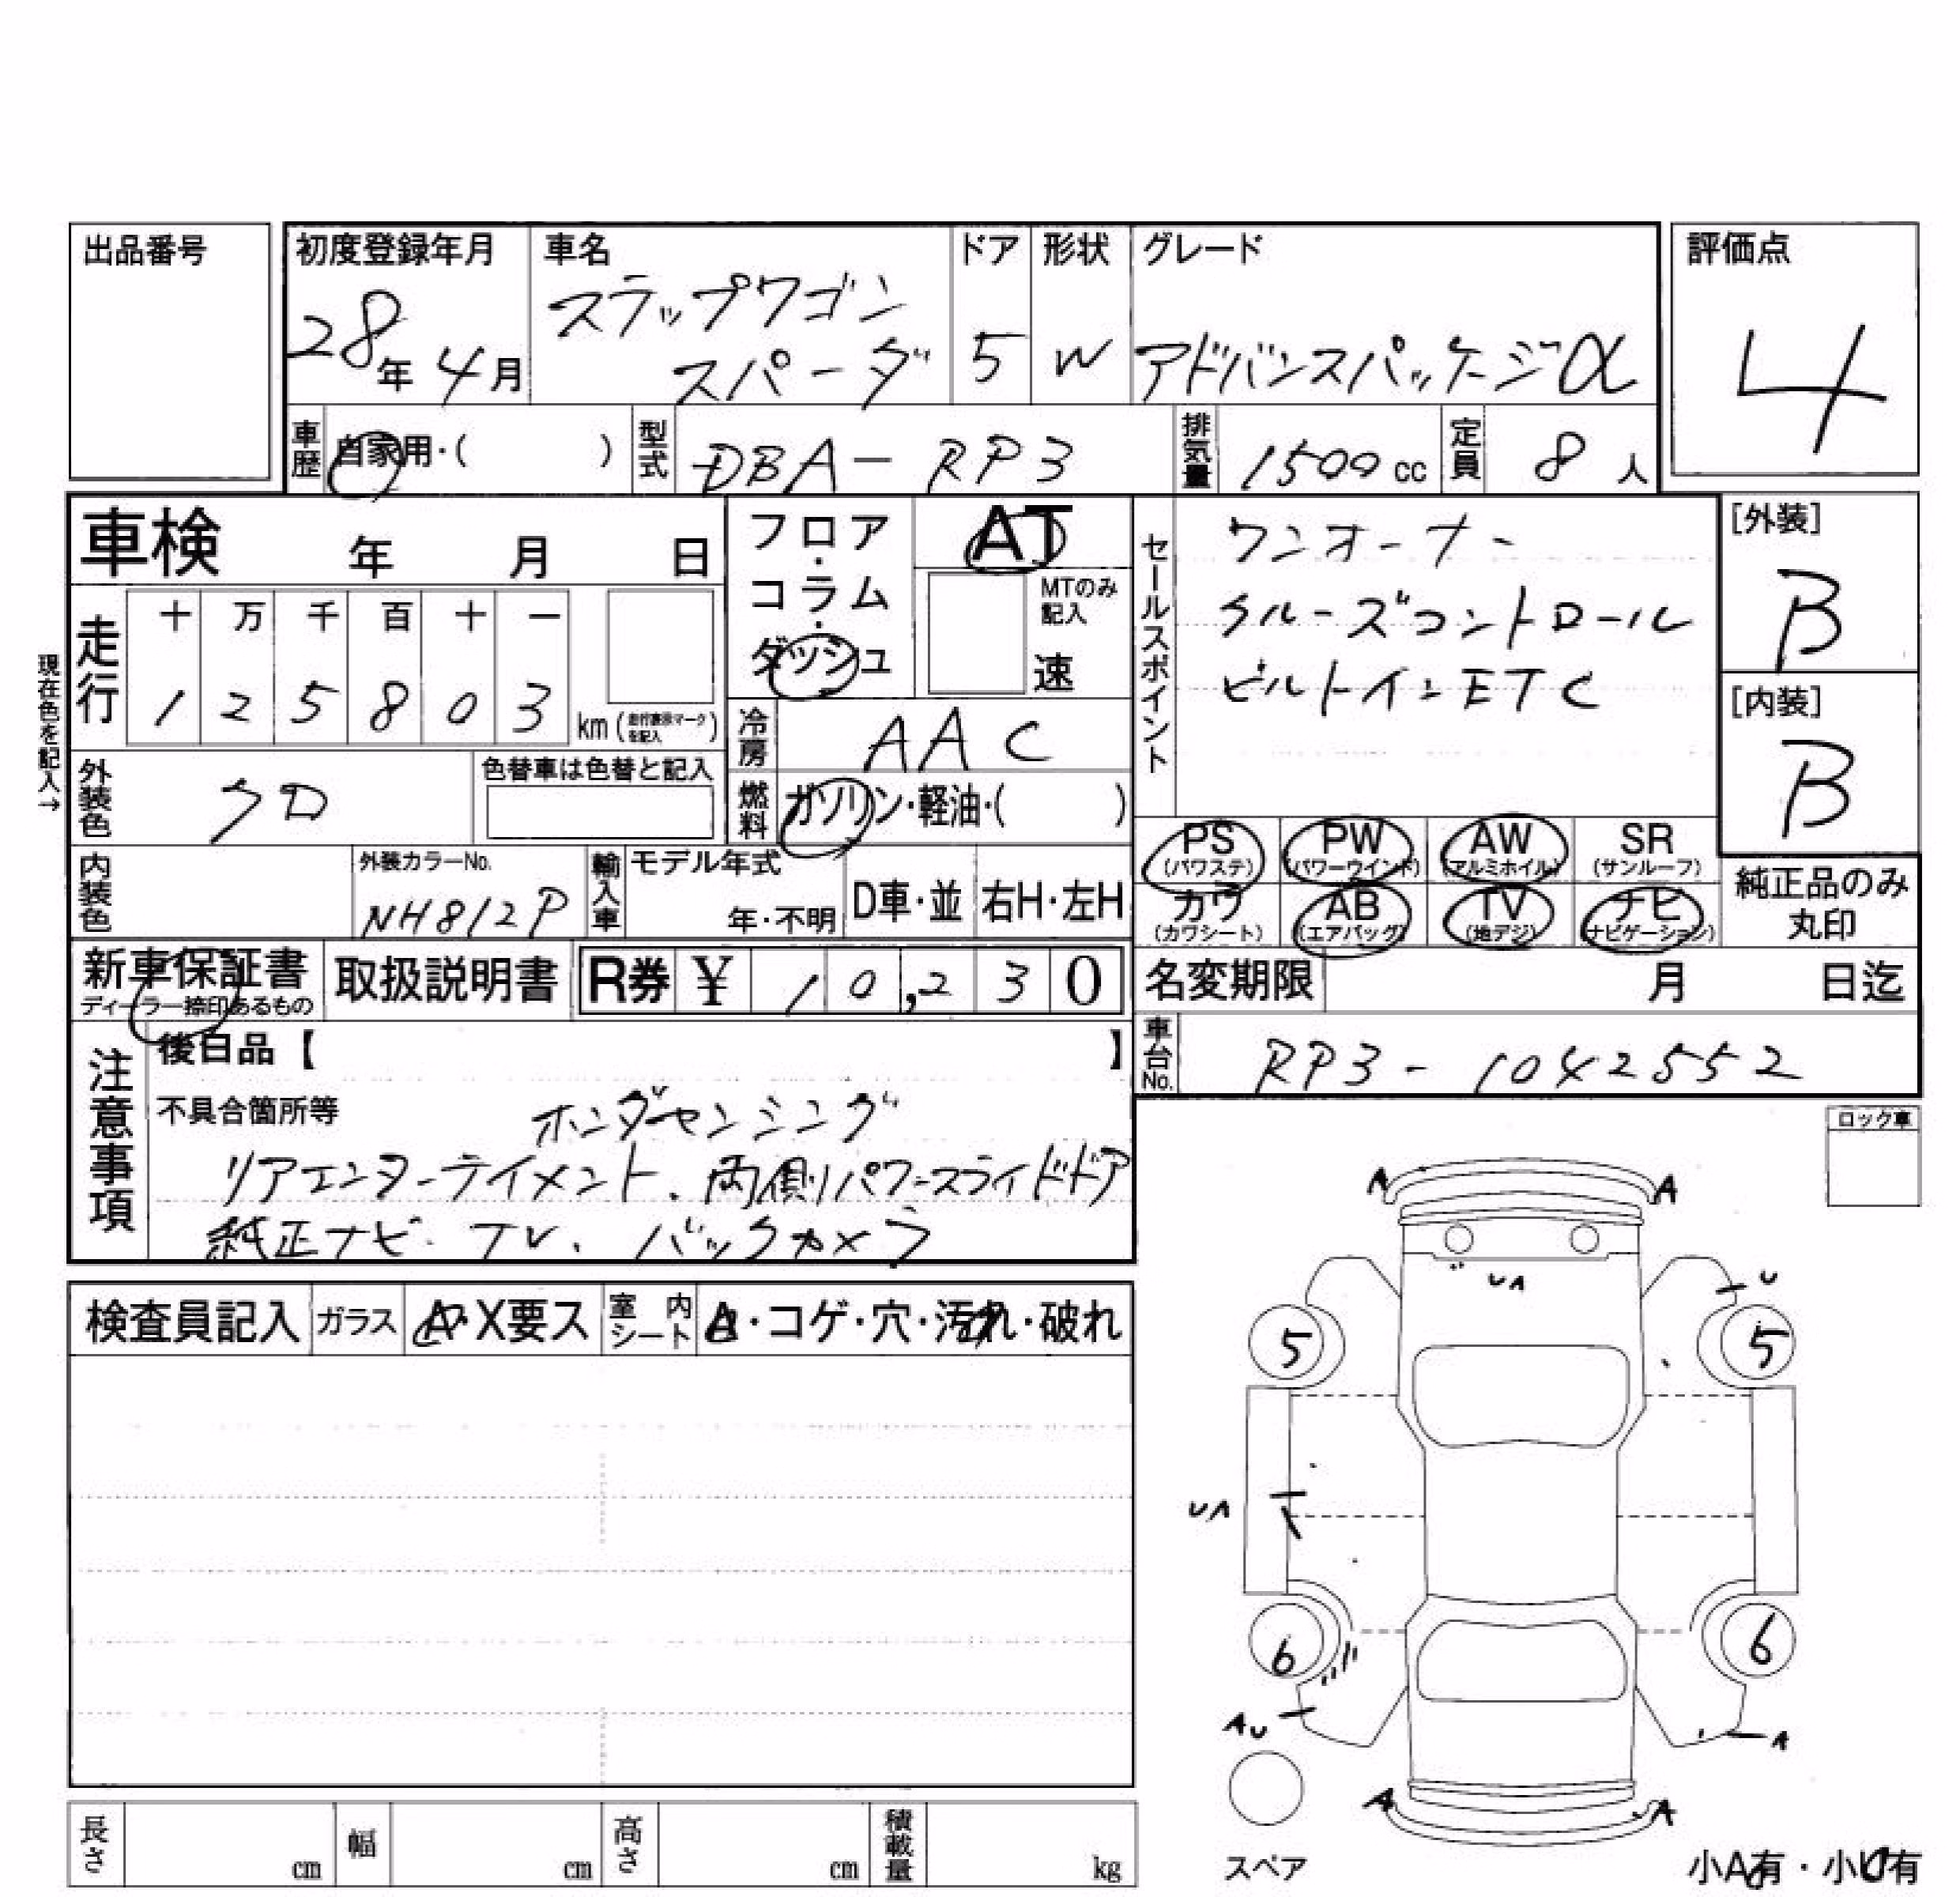 出品番号
初度登録年月 車名 ドア 形状 グレード 評価点
28年 4月 ステップワゴン スパーダ 5 W アドバンスパッケージα 4
車歴 自家用・( ) 型式 DBA-RP3 排気量 1500cc 定員 8人
車検 年 月 日
フロア・コラム・ダッシュ AT
MTのみ記入 速
セールスポイント
ワンオーナー
クルーズコントロール
ビルトインETC
[外装] B
[内装] B
現在色を記入→
走行 十 万 千 百 十 一
1 2 5 8 0 3 km(走行表示マークを記入)
冷房 AAC
外装色 クロ 色替車は色替と記入
燃料 ガソリン・軽油・( )
PS (パワステ) PW (パワーウインド) AW (アルミホイル) SR (サンルーフ)
カワ (カワシート) AB (エアバッグ) TV (地デジ) ナビ (ナビゲーション)
純正品のみ丸印
内装色 外装カラーNo. NH812P 輸入車 モデル年式 年・不明 D車・並 右H・左H
新車保証書 ディーラー捺印あるもの 取扱説明書 R券 ¥ 10,230
名変期限 月 日迄
車台No. RP3-1042552
注意事項
後日品【 】
不具合箇所等 ホンダセンシング
リアエンターテイメント、両側パワースライドドア
純正ナビ・TV、バックカメラ
ロック車
検査員記入 ガラス A・X要ス 室内シート ・コゲ・穴・汚れ・破れ
A A
UA U
5 5
UA
6 6
AU A
A A
スペア
長さ cm 幅 cm 高さ cm 積載量 kg
小A有・小U有